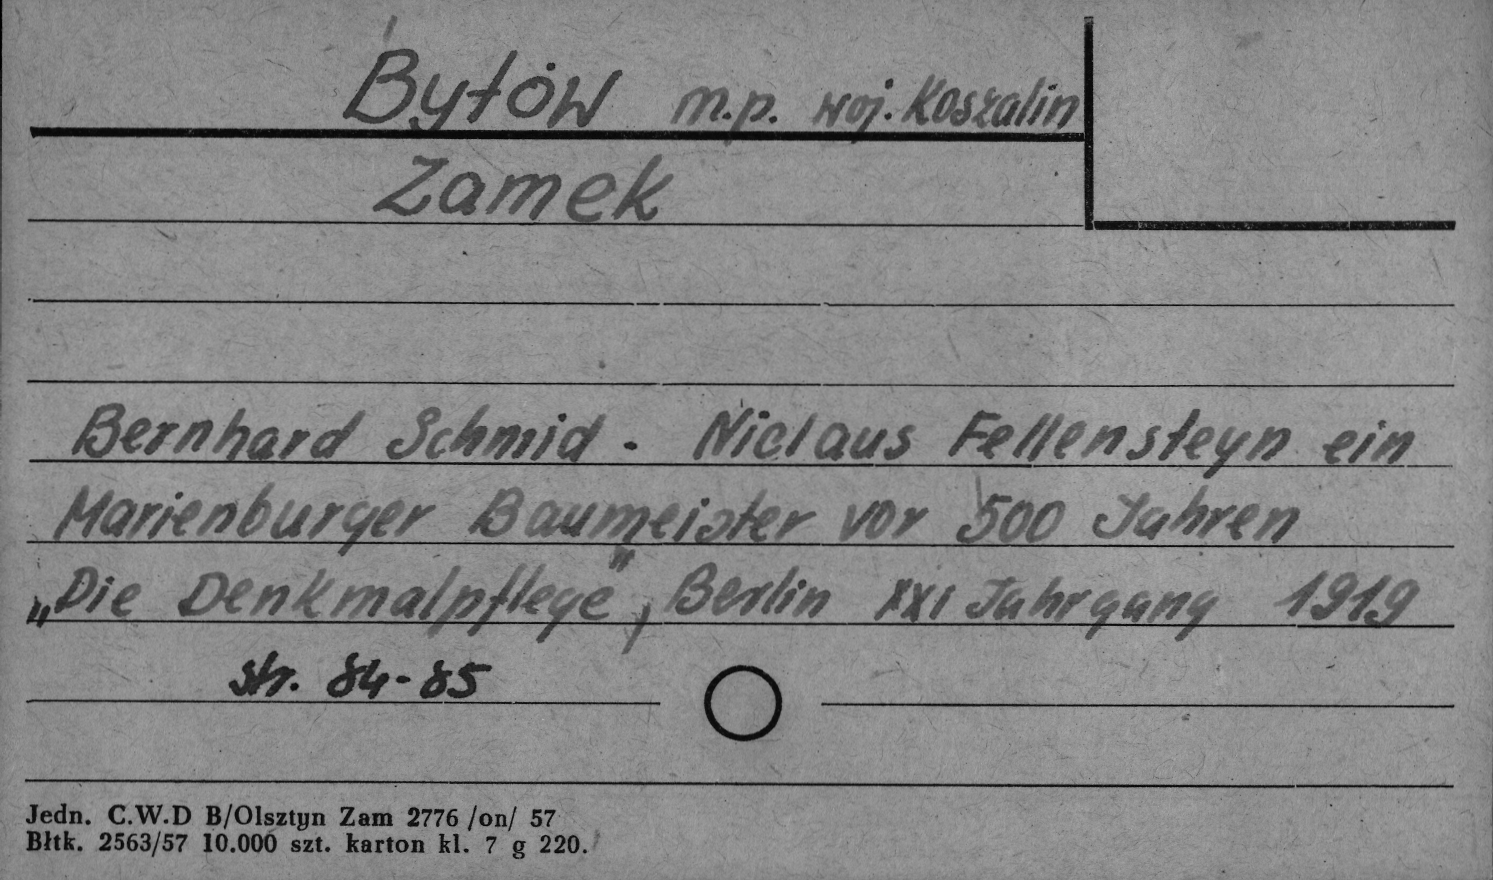 Bytów m.p. woj. Koszalin
Zamek
Bernhard Schmid. Niclaus Fellensteyn ein
Marienburger Baumeister vor 500 Jahren
„Die Denkmalpflege", Berlin XXI Jahrgang 1919
str. 84-85
Jedn. C.W.D B/Olsztyn Zam 2776 /on/ 57
Błtk. 2563/57 10.000 szt. karton kl. 7 g 220.